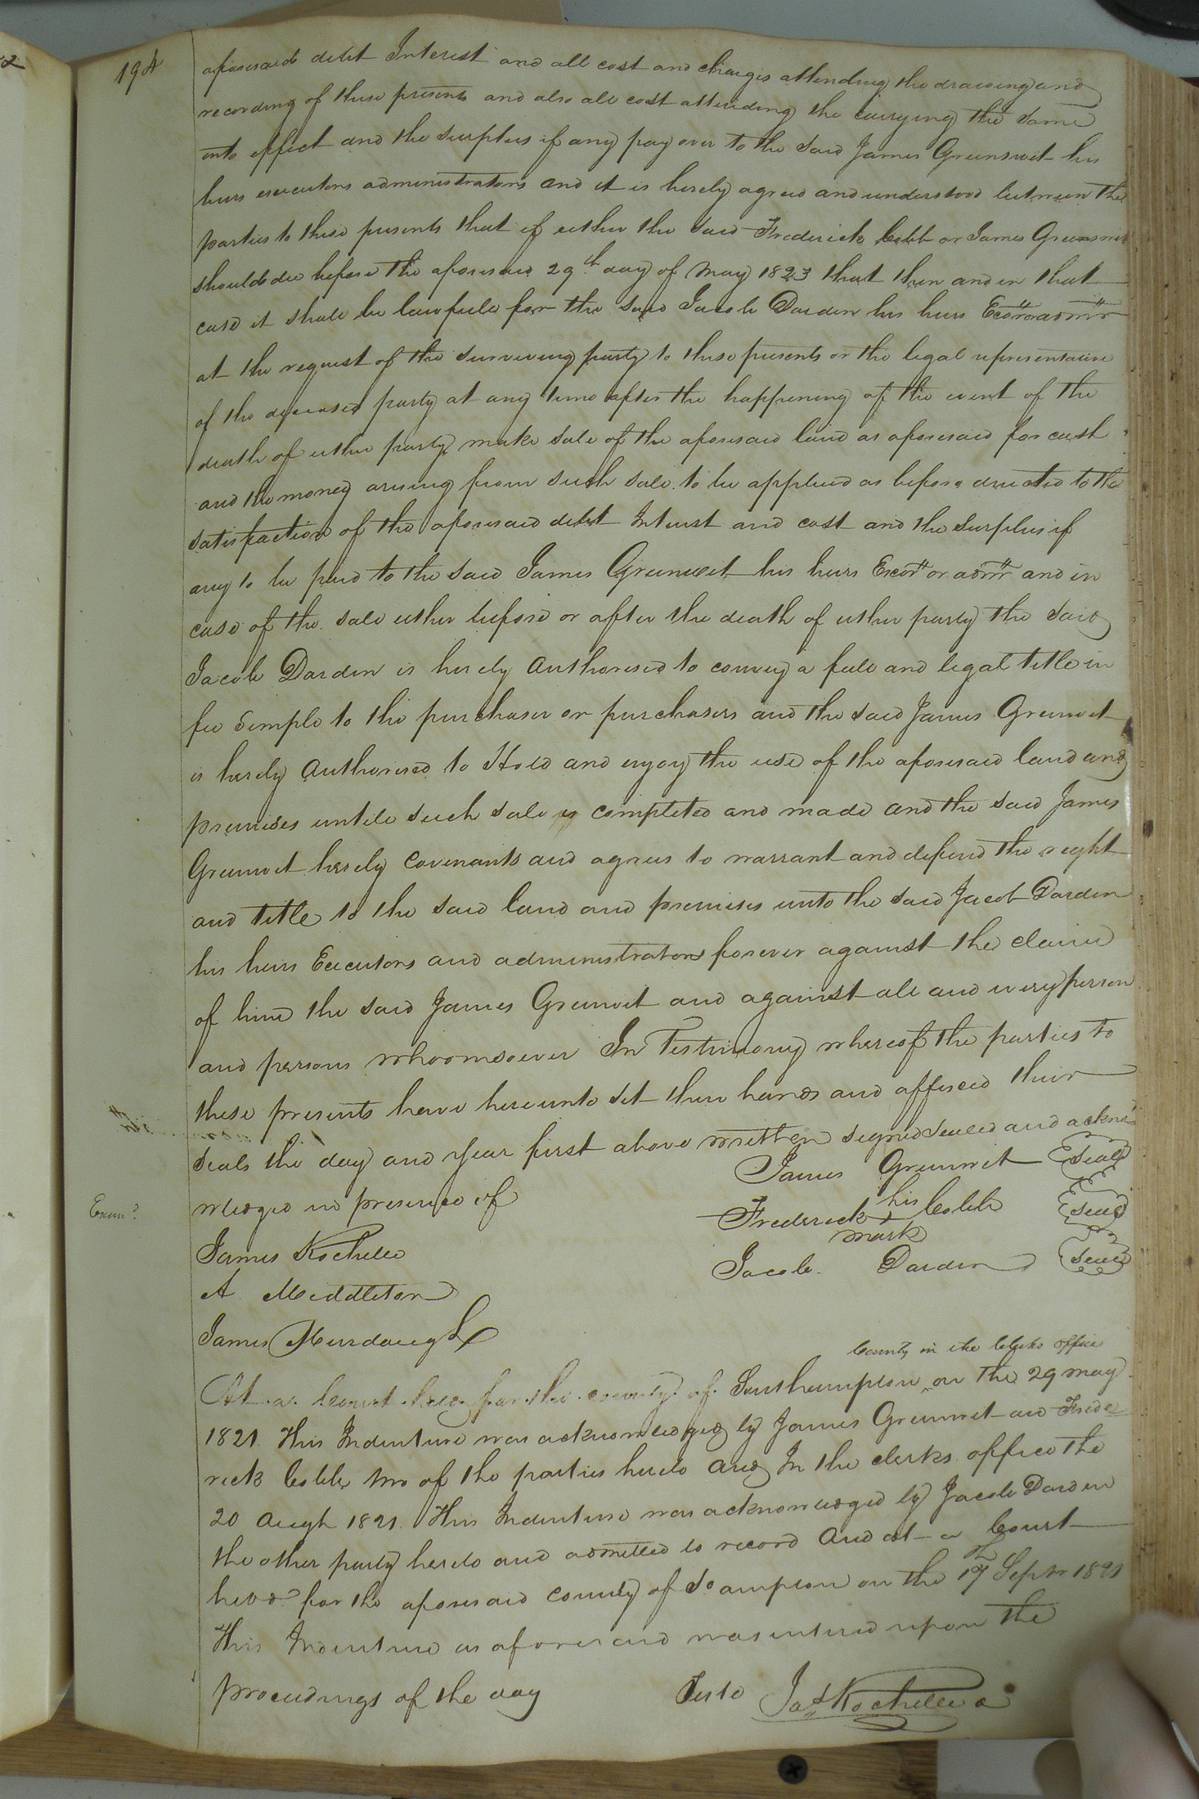 194
aforesaid debt Interest and all cost and charges attending the drawing and
recording of these presents and also all cost attending the carrying the same
into effect and the surplus if any pay over to the said James Grumwet his
heirs executors administrators and it is hereby agreed and understood between the
parties to these presents that if either the said Frederick Cobb or James Grumwet
should die before the aforesaid 29th day of May 1823 that then and in that
case it shall be lawfull for the said Jacob Darden his heirs Ecors or admrs
at the request of the surviving party to these presents or the legal representative
of the deceased party at any time after the happening of the event of the
death of either party make sale of the aforesaid land as aforesaid for cash
and the money arising from such sale to be applied as before directed to the
satisfaction of the aforesaid debt Interest and cost and the Surplus if
any to be paid to the said James Grumwet his heirs Excors or admrs and in
case of the sale either before or after the death of either party the said
Jacob Darden is hereby authorised to convey a full and legal title in
fee Simple to the purchaser or purchasers and the said James Grumwet
is hereby authorised to Hold and enjoy the use of the aforesaid land and
premises untill such sale is completed and made and the said James
Grumwet hereby covenants and agrees to warrant and defend the right
and title to the said land and premises unto the said Jacob Darden
his heirs Executors and administrators forever against the claim
of him the said James Grumwet and against all and every person
and persons whoomsoever In Testimony whereof the parties to
these presents have hereunto set their hands and affixed their
seals the day and year first above written signed sealed and ackno
wledged in presence of
James Grumwet Seal
Frederick his mark Cobb Seal
Jacob Darden Seal
Exam.d
James Rochelle
A Middleton
James Murdaugh
County in the Clerks office
At a Court held for the county of Southampton on the 29 May
1821 This Indenture was acknowledged by James Grumwet and Frede
rick Cobb two of the parties hereto and In the clerks office the
20 Augt 1821 This Indenture was acknowledged by Jacob Darden
the other party hereto and admitted to record And at a Court
held for the aforesaid county of So ampton on the 17th Septr 1821
This Indenture as aforesaid was entered upon the
proceedings of the day
Teste Jas Rochelle c